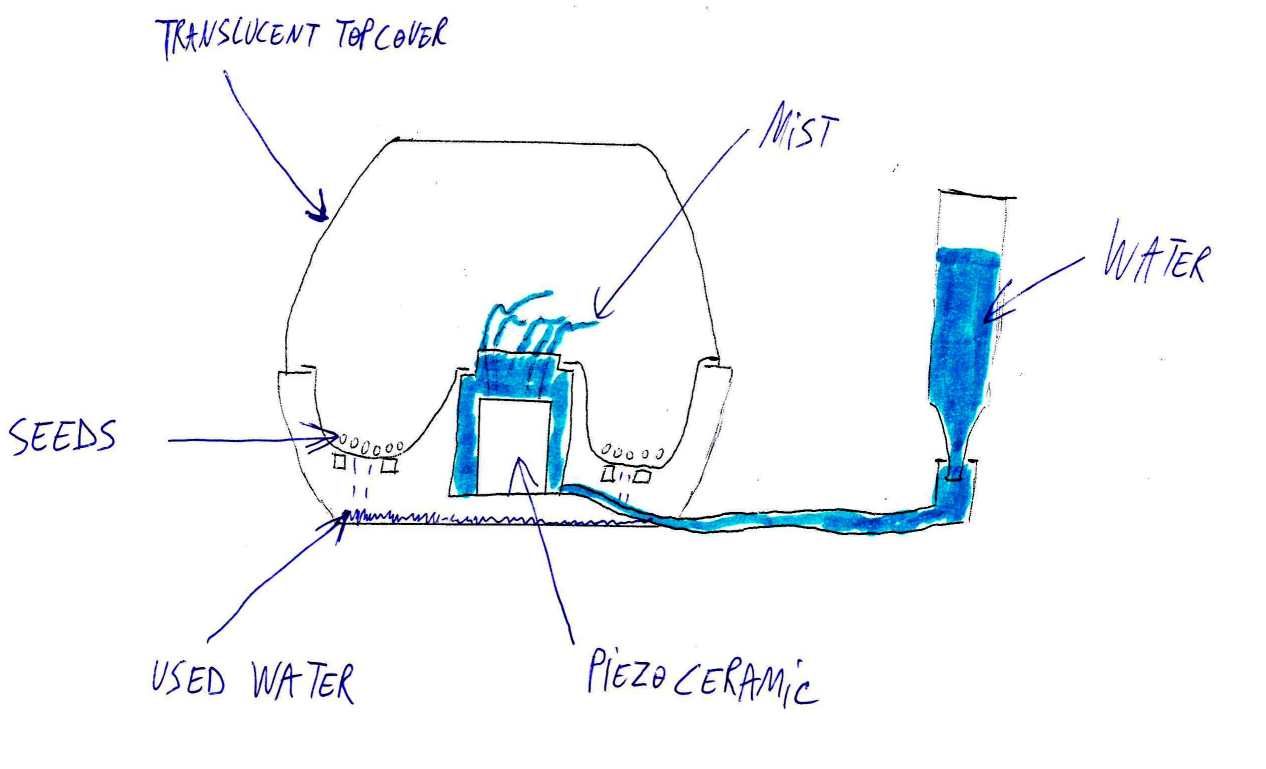 TRANSLUCENT TOPCOVER
MiST
WATER
SEEDS
USED WATER
PiEZO CERAMiC